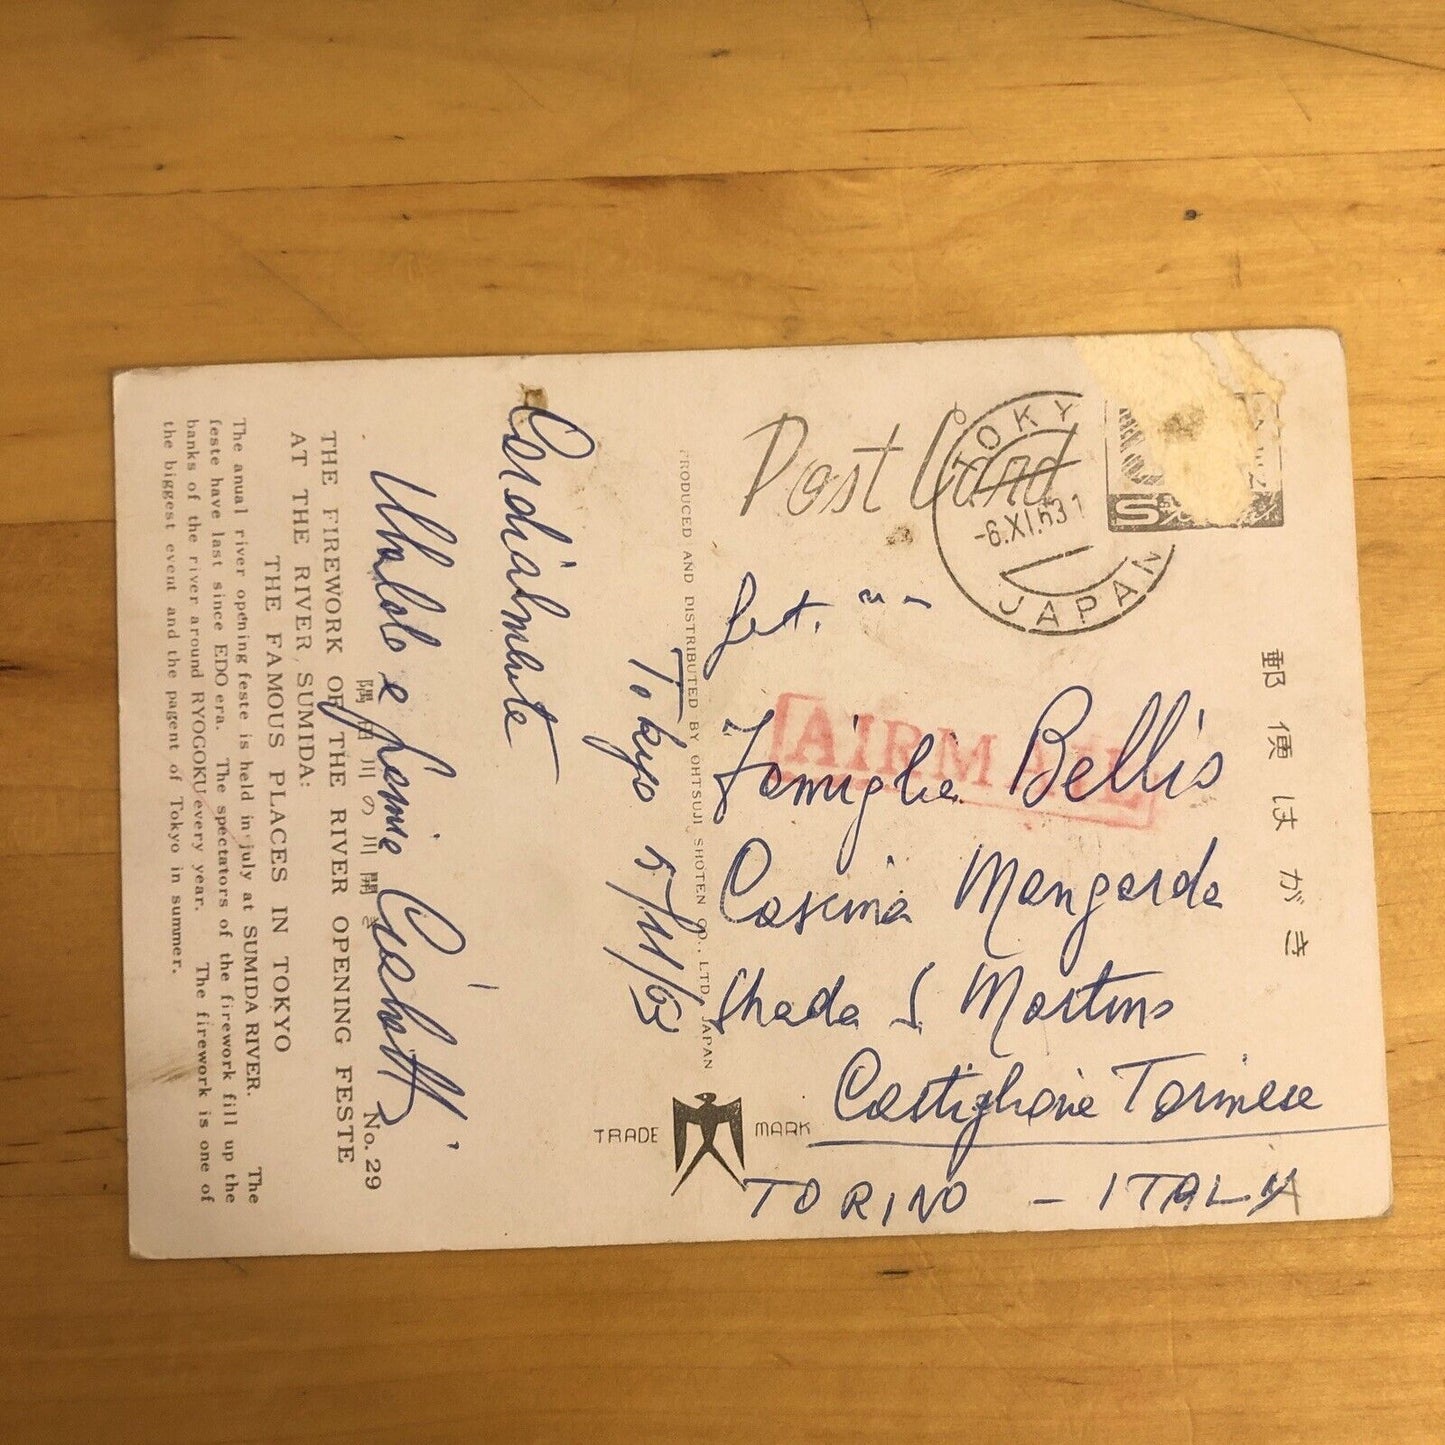 Post Card
TOKYO
-6.XI.63 1
JAPAN
郵便はがき
AIRMAIL
Famiglia Bellis
Cascina Mangarda
Strada S Martino
Castiglione Torinese
TORINO - ITALY
Tokyo 5/11/63
Cordialmente
e fam
PRODUCED AND DISTRIBUTED BY OHTSUJI SHOTEN CO., LTD, JAPAN
TRADE MARK
隅田川の川開き No. 29
THE FIREWORK OF THE RIVER OPENING FESTE
AT THE RIVER SUMIDA:
THE FAMOUS PLACES IN TOKYO
The anual river opening feste is held in july at SUMIDA RIVER. The
feste have last since EDO era. The spectators of the firework fill up the
banks of the river around RYOGOKU every year. The firework is one of
the biggest event and the pagent of Tokyo in summer.